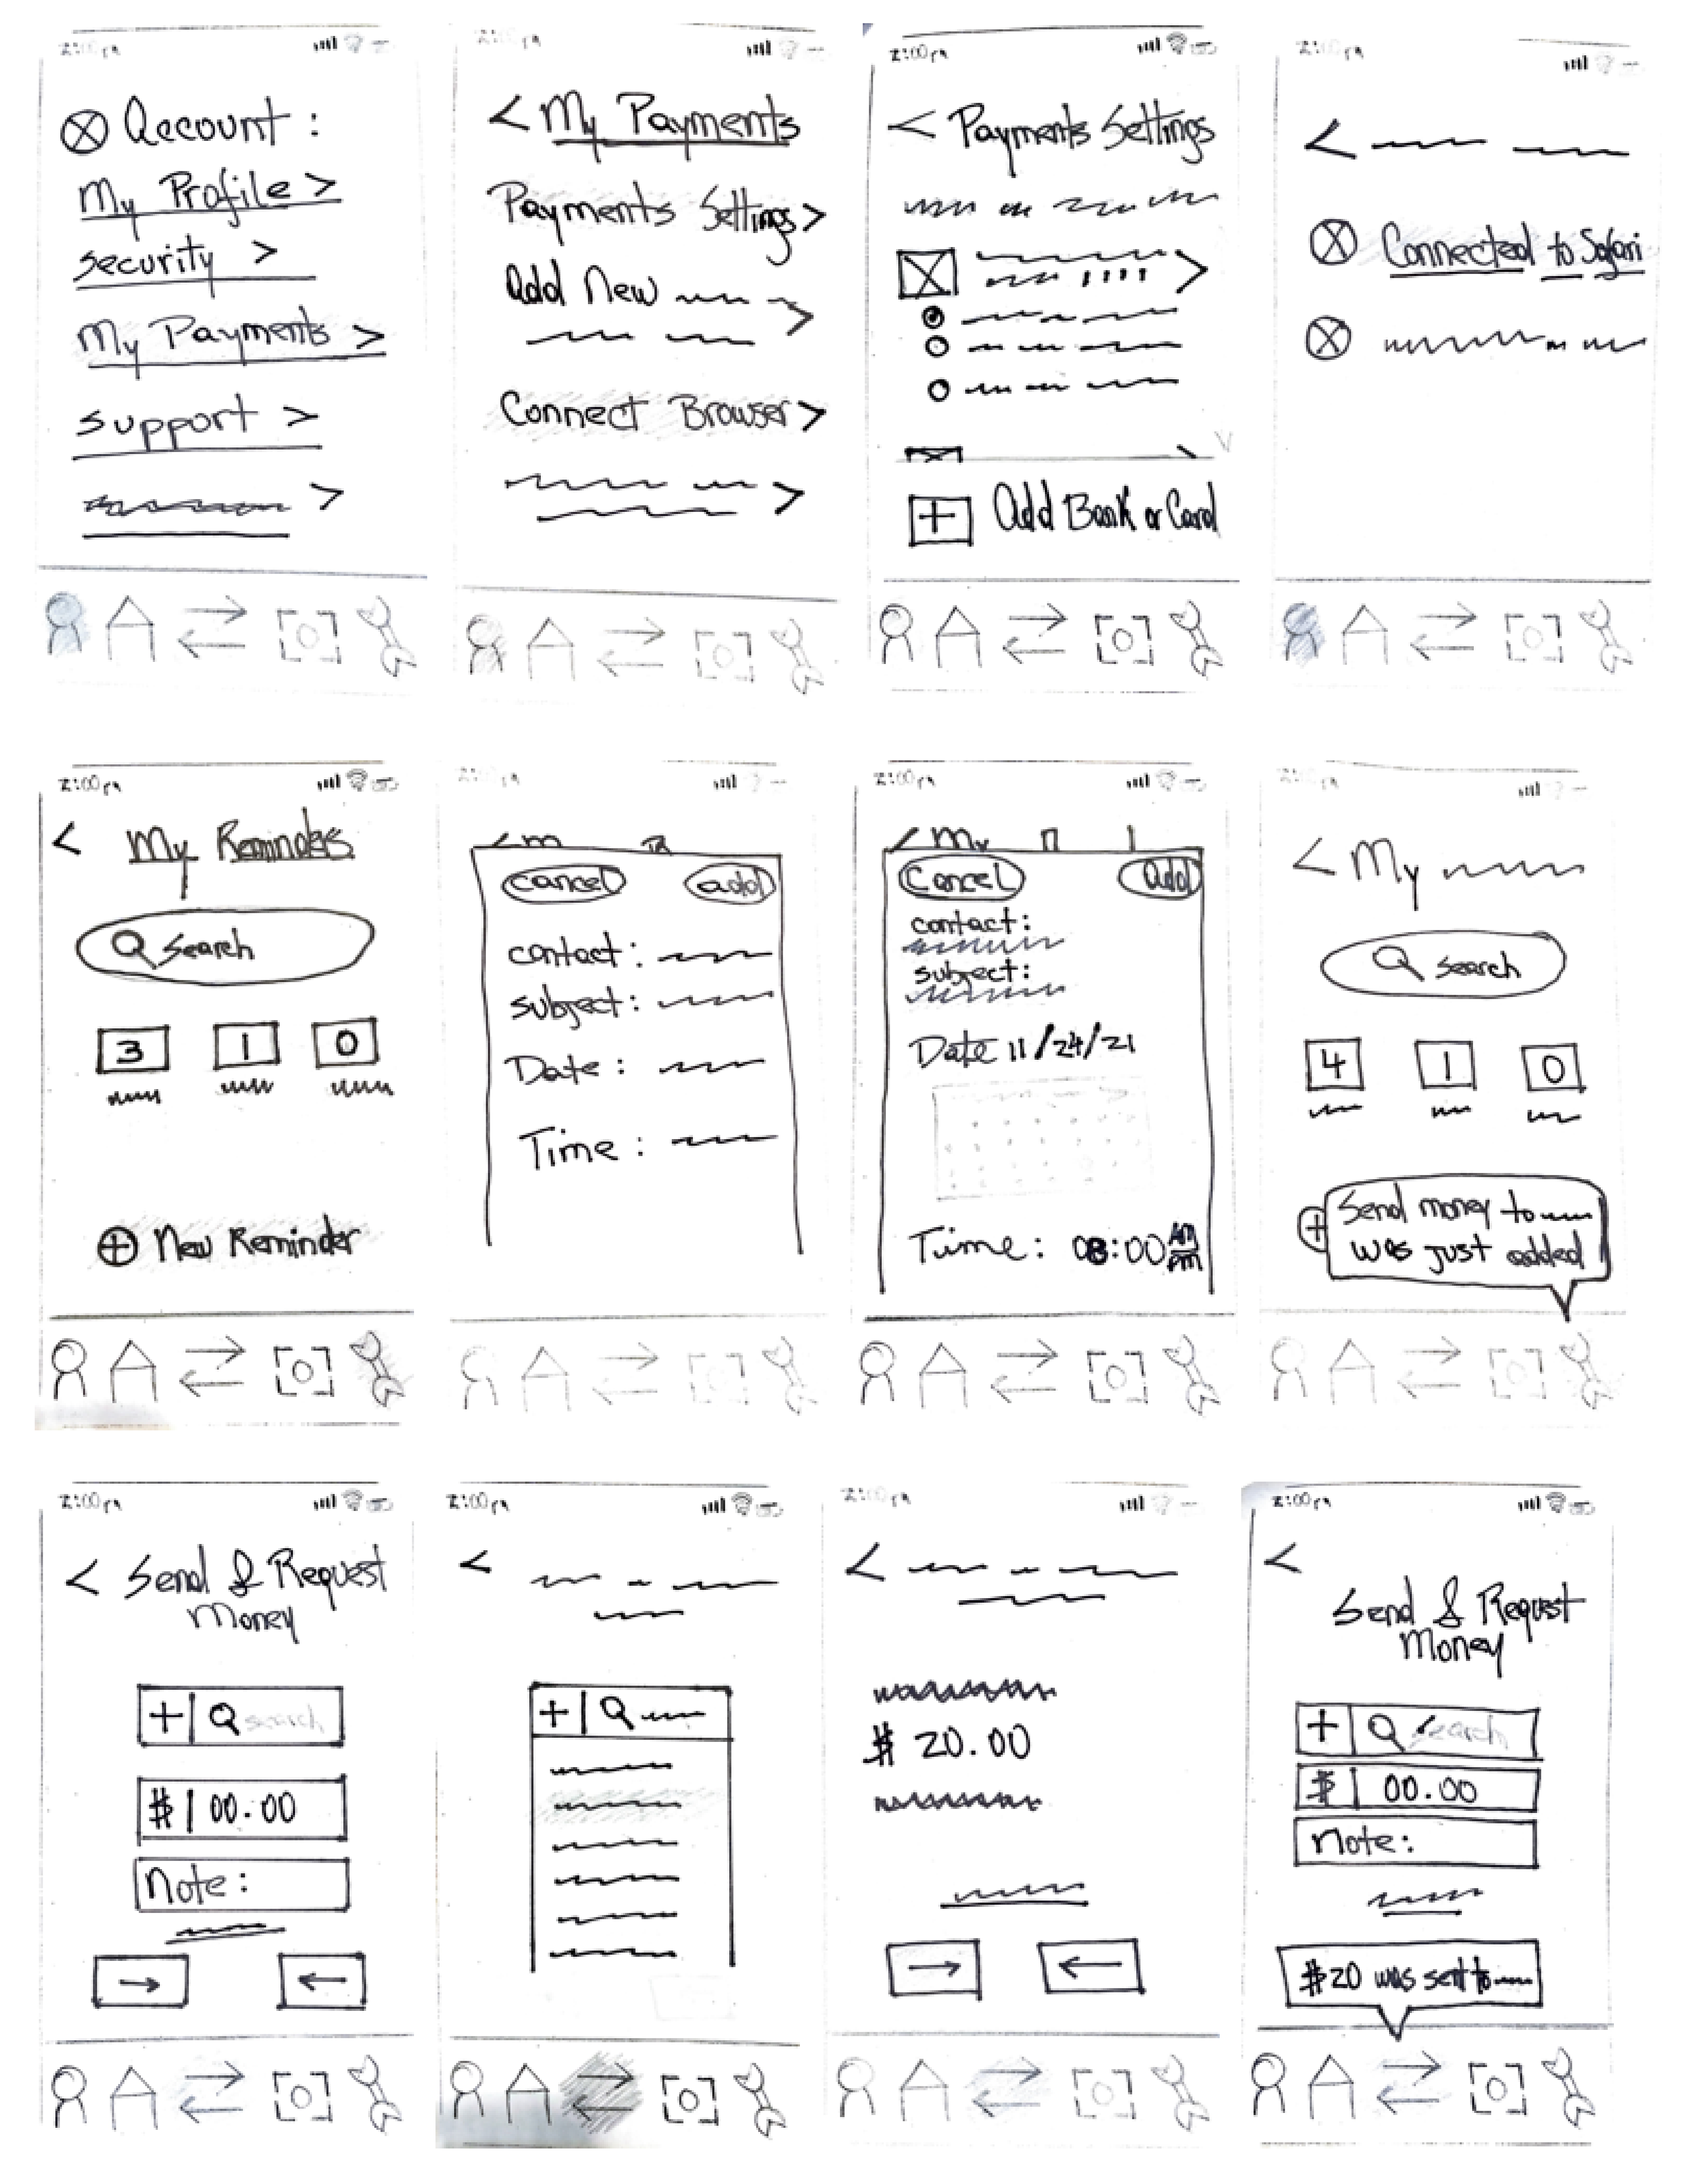 2:00 PM
Account :
My Profile >
Security >
My Payments >
Support >
>
2:00 PM
< My Payments
Payments Settings >
Add New
>
Connect Browser >
>
2:00 PM
< Payments Settings
>
+ Add Bank or Card
2:00 PM
<
Connected to Safari
2:00 PM
< My Reminders
Search
3 1 0
+ New Reminder
2:00 PM
cancel add
contact :
subject :
Date :
Time :
2:00 PM
< My
Cancel Add
contact :
subject :
Date 11/24/21
Time : 08:00 AM
PM
2:00 PM
< My
Search
4 1 0
Send money to
+ was just added
2:00 PM
< Send & Request
Money
+ search
$ 00.00
Note :
→ ←
2:00 PM
<
+
2:00 PM
<
$ 20.00
→ ←
2:00 PM
<
Send & Request
Money
+ Search
$ 00.00
Note :
$20 was sent to